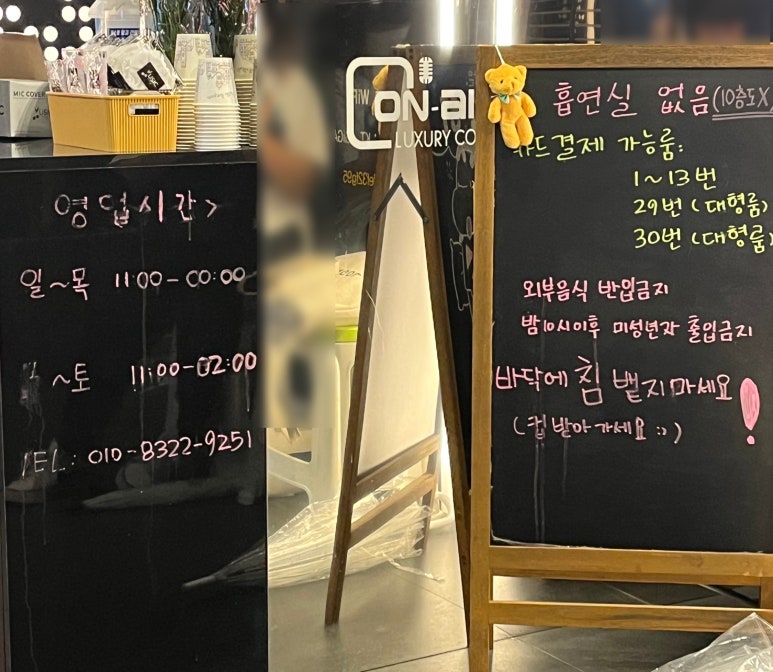 MIC COVER
영업시간 >
일~목 11:00-00:00
~토 11:00-02:00
TEL: 010-8322-9251
ON-
LUXURY CO
흡연실 없음 (10층도X
카드결제 가능룸:
1~13번
29번 (대형룸)
30번 (대형룸)
외부음식 반입금지
밤10시이후 미성년자 출입금지
바닥에 침 뱉지마세요!
(컵 받아가세요 :))